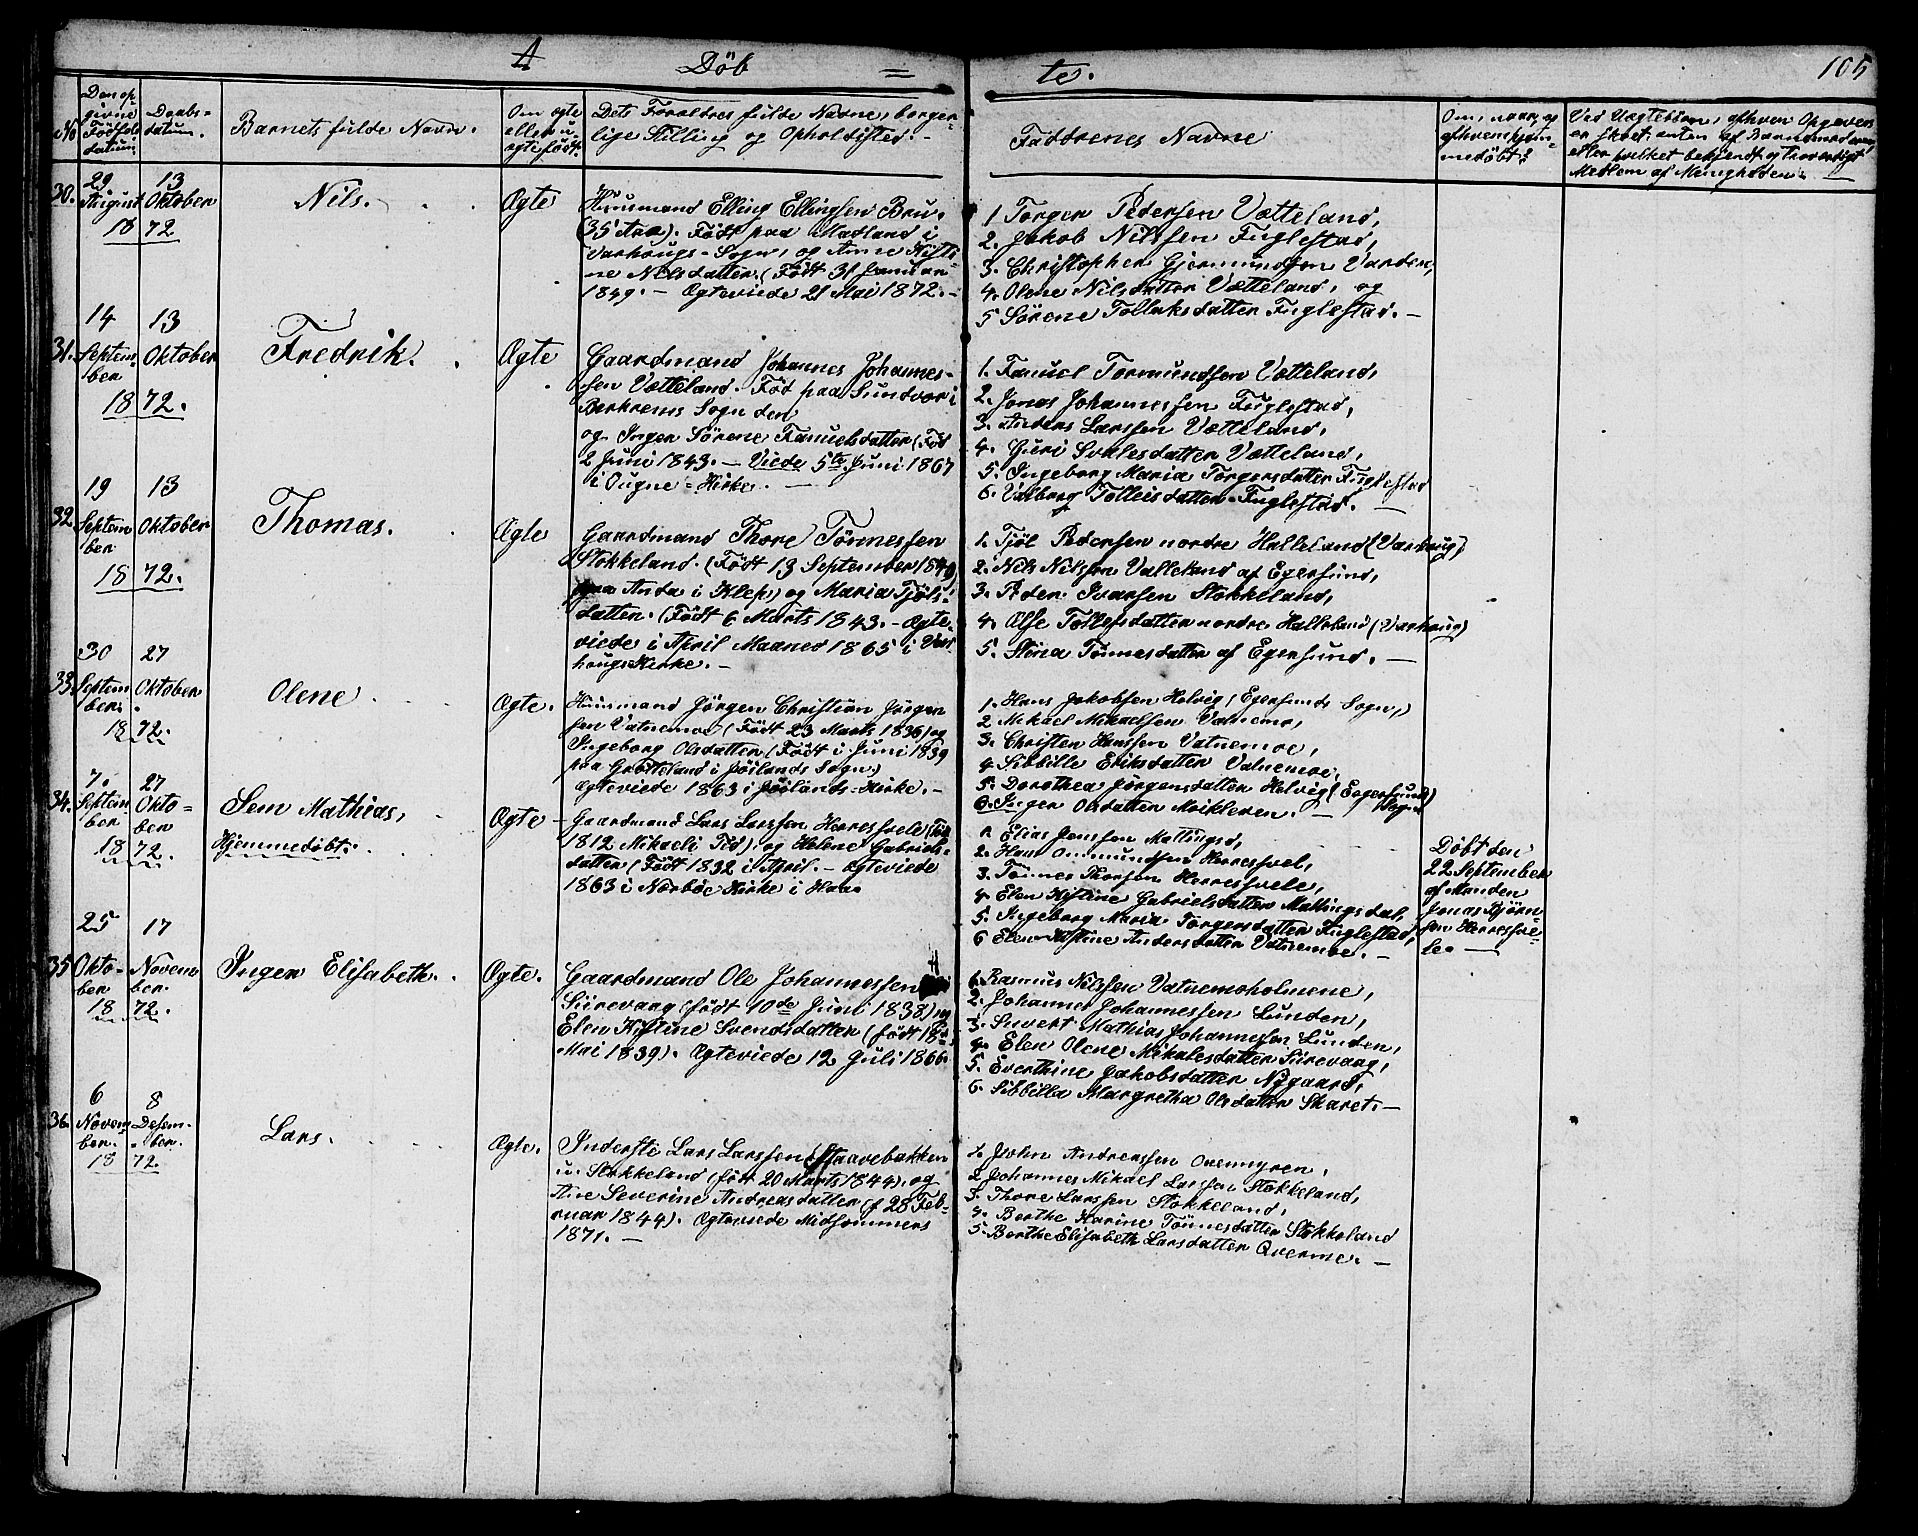 A Döb = te. 105
No
Den op-
givne
Födsels
datum.
Daabs-
datum.
Barnets fulde Navn.
Om ægte
eller u-
ægtefödt.
Dets Forældres fulde Navne, borger-
lige Stilling og Opholdssted.
Faddrenes Navne
Om, naar, og
af hvem hjem-
medöbt?
Ved Uægtebörn, af hvem Opgaven
er skeet: enten af Barnemoderen
eller hvilket bekjendt og troværdigt
Medlem af Menigheden. —
30.
29
August
18
13
Oktober
72
Nils.
Ægte
Huusmand Elling Ellingsen Bru.
(35 Aar). Födt paa Madland i
Varhougs-Sogn, og Anne Kisti-
ne Nilsdatter. (Födt 31 Januar
1849. — Ægteviede 21 Mai 1872. —
1 Torger Pedersen Vætteland,
2. Jakob Nilssen Fuglestad,
3. Christopher Gjermundsen Varden,
4. Olene Nilsdatter Vætteland, og
5 Sörene Tollaksdatter Fuglestad. —
31.
14
Septem-
ber
18
13
Oktober
72.
Fredrik.
Ægte
Gaardmand Johannes Johannes-
sen Vætteland. Föd paa Sundvor i
Berkrems Sogn den
og Inger Sörene Fanuelsdatter (Föd
2 Juni 1843. — Viede 5te Juni 1867
i Ougne-Kirke. —
1. Fanuel Tormundsen Vætteland,
2. Jonas Johannessen Fuglestad,
3. Anders Larssen Vætteland,
4. Guri Svalesdatter Vætteland,
5. Ingeborg Maria Torgersdatter Fuglestad
6. Valborg Tolleisdatter Fuglestad. —
32
19
Septem
ber
18
13
Oktober
72.
Thomas.
Ægte
Gaardmand Thore Tönnessen
Stokkeland. (Födt 13 September 1840)
paa Anda i Klep) og Maria Tjöls-
datter. (Födt 6 Marts 1843. — Ægte-
viede i April Maaned 1865 i Var-
hougs Kirke. —
1. Tjöl Pedersen nordre Halleland (Varhaug)
2. Nils Nilssen Valleland af Egersund,
3. Peder Ivarsen Stokkeland,
4. Olse Tollefsdatter nordre Halleland (Varhaug)
5. Stina Tönnesdatter af Egersund. —
33.
30
Septem
ber.
18
27
Oktober
72.
Olene
Ægte.
Huusmand Jörgen Christian Jörgen
sen Vatnemoe (Födt 23 Marts 1836) og
Ingeborg Olsdatter (Födt i Juni 1839
paa Grötteland i Jöilands Sogn.)
Ægteviede 1863 i Jöilands-Kirke. —
1. Hans Jakobsen Helvig (Egersunds Sogn,)
2 Mikael Mikaelsen Vatnemo,
3. Christen Hanssen Vatnemoe,
4 Sibbille Eriksdatter Vatnemoe,
5. Dorothea Jörgensdatter Helvig (Egersund)
6. Inger Olsdatter Moikleren. — Sogn
34.
7.
Septem
ber
18
27
Okto-
ber
72.
Sem Mathias,
Hjemmedöbt.
Ægte
Gaardmand Lars Larssen Herresvele (Föd
1812 Mikaeli Tid) og Helene Gabriels-
datter (Födt 1832 i April. — Ægteviede
1863 i Nærböe Kirke i Haa
1. Elias Jonssen Mattingsd,
2. Hans Ommundsen Herresvel,
3. Tönnes Thorsen Herresvele,
4. Elen Kistine Gabrielsdatter Mattingsdal,
5. Ingeborg Maria Torgersdatter Fuglestad,
6 Elen Kistine Andersdatter Vatnemoe. —
Döbt den
22 September
af Manden
Jonas Björn-
sen Herresve-
le. —
35
25
Okto-
ber
18
17
Novem
ber.
72.
Inger Elisabeth.
Ægte.
Gaardmand Ole Johannessen
Siirevaag (födt 10de Juni 1838) og
Elen Kistine Svendsdatter (födt 18de
Mai 1839). Ægteviede 12 Juli 1866.
1. Rasmus Nilssen Vatnemoholmene,
2. Johannes Johannessen Lunden,
3. Sivert Mathias Johannessen Lunden,
4. Elen Olene Mikalesdatter Siirevaag,
5. Everthine Jakobsdatter Nygaard,
6. Sibbilla Margretha Olsdatter Skaret. —
36.
6
Novem
ber.
18
8
Desem-
ber.
72
Lars.
Ægte.
Inderste Lars Larssen Staavebakken
u. Stokkeland (födt 20 Marts 1844). og
Ane Severine Andreasdatter (f 28 Feb-
ruar 1844). Ægteviede Midsommers
1871. —
1. John Andreassen Ovenmyren,
2 Johannes Mikael Larssen Stokkeland,
3. Thore Larssen Stokkeland,
4. Berthe Karine Tönnesdatter Stokkeland
5. Berthe Elisabeth Larsdatter Qverme. —